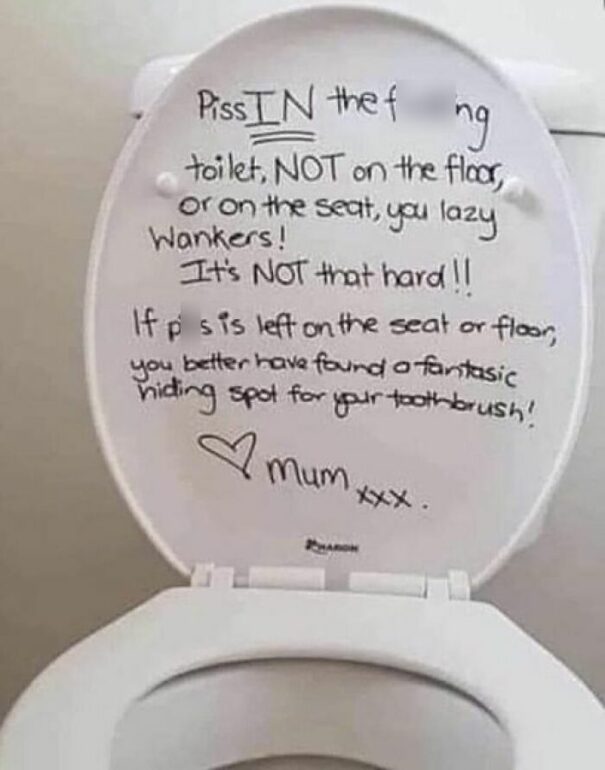 Piss IN the f ng
toilet, NOT on the floor,
or on the seat, you lazy
Wankers!
It's NOT that hard!!
If p s is left on the seat or floor,
you better have found a fantasic
hiding spot for your toothbrush!
♡ mum xxx.
PHARON